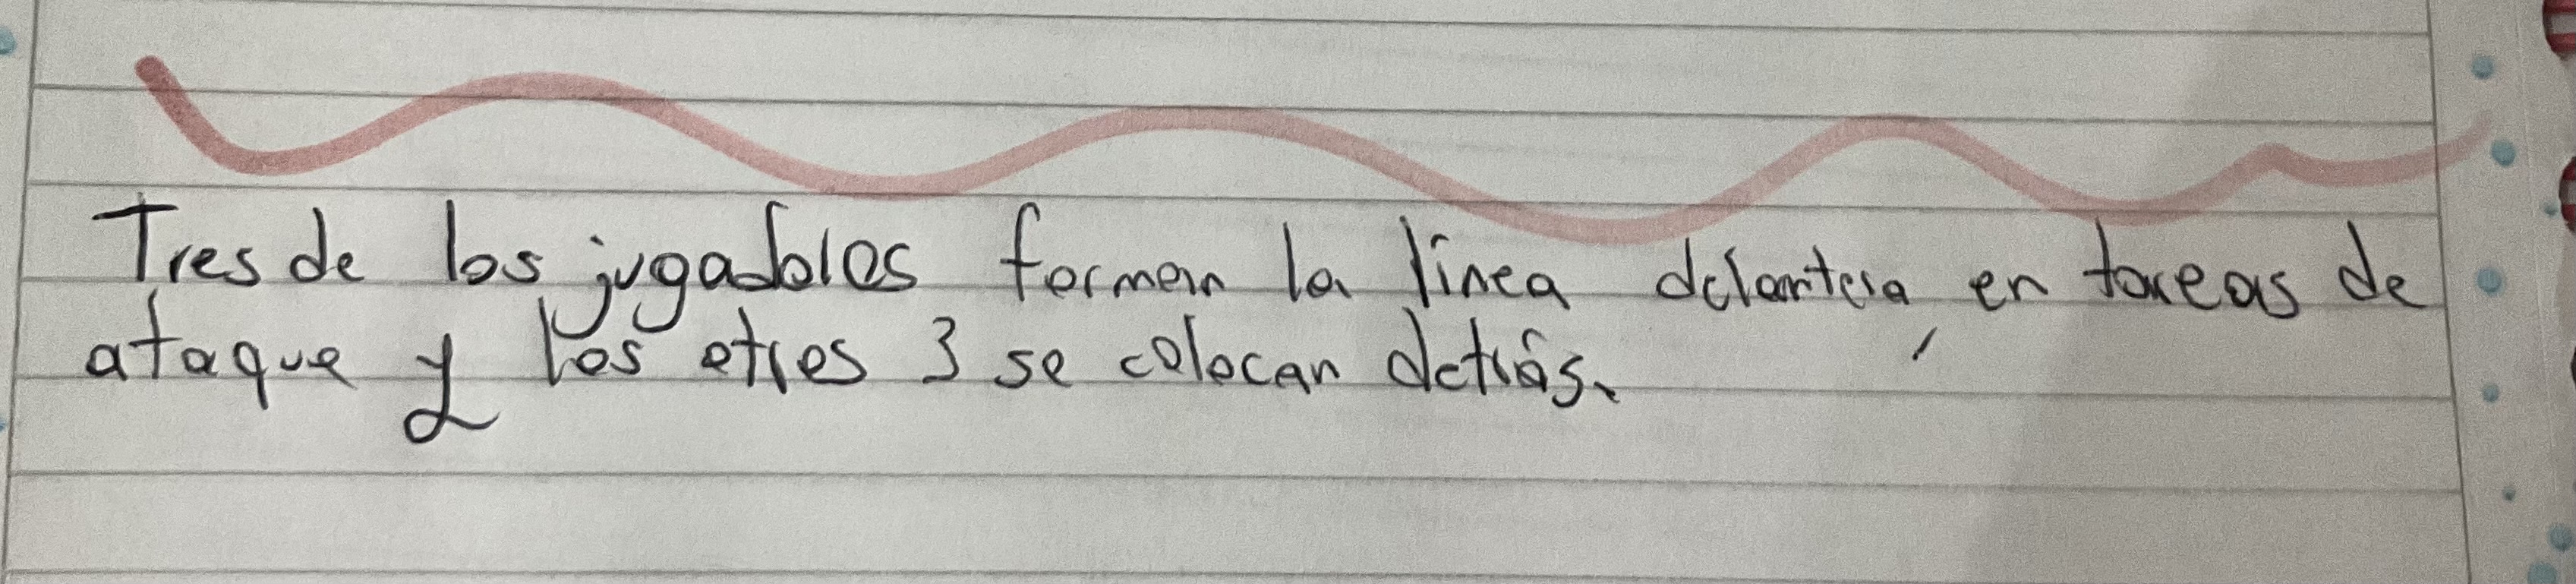 Tres de los jugadores forman la línea delantera en tareas de
ataque y los otros 3 se colocan detrás.